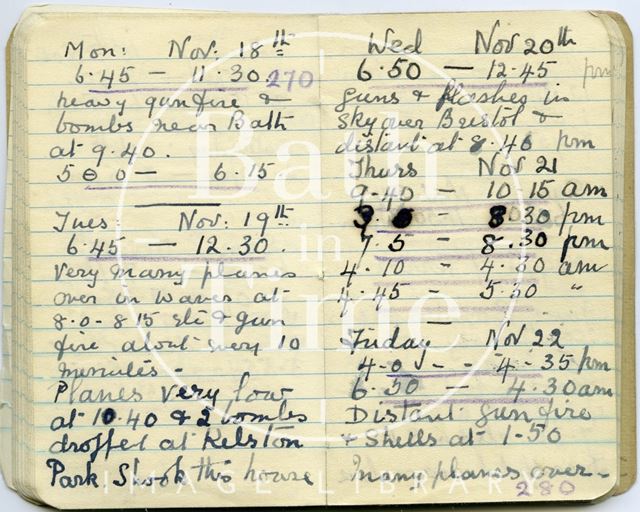 Mon: Nov. 18th
6.45 — 11.30. 270
heavy gunfire &
bombs near Bath
at 9.40.
5 0 0 — 6.15
Tues: Nov: 19th
6.45 — 12.30.
Very many planes
over in waves at
8.0 - 8 15 etc & gun
fire about every 10
minutes -
Planes very low
at 10.40 & 2 bombs
dropped at Kelston
Park. Shook this house
Wed Nov 20th
6.50 — 12.45 pm
Guns & flashes in
sky over Bristol &
distant at 8.40 pm
Thurs Nov 21
9.40 — 10.15 am
— 8.30 pm
7.5 — 8.30 pm
4.10 — 4.30 am
4.45 — 5.30 "
Friday Nov 22
4.0 - - 4.35 pm
6.30 — 4.30 am
Distant gun fire
& Shells at 1-50
Many planes over -
280
Bath
in
Time
IMAGE LIBRARY